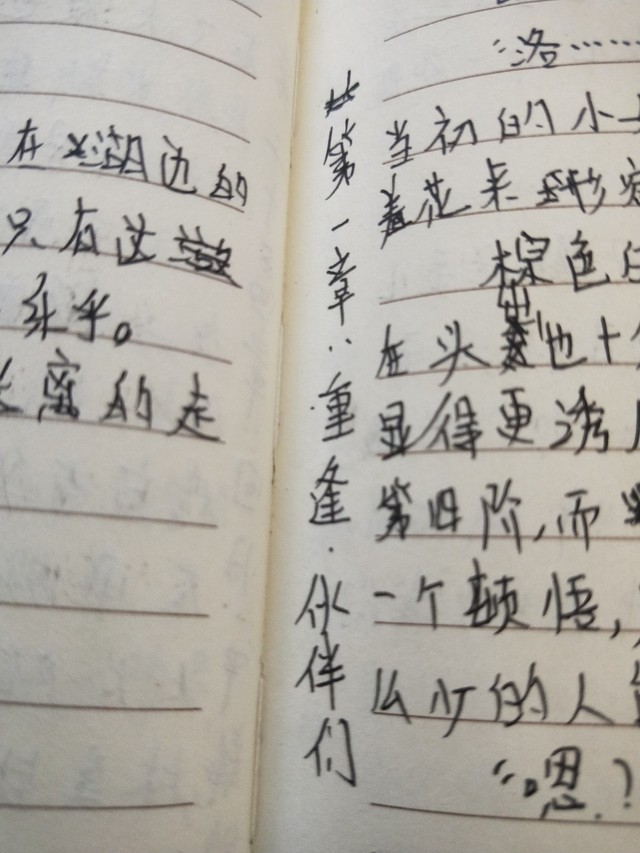 在湖边的
只有这
永乎。
离的走
第一章：重逢·伙伴们
“洛……
当初的小
着花来
棕色
在头也十分
显得更诱
第四阶，而
一个顿悟，
么少的人
“嗯？